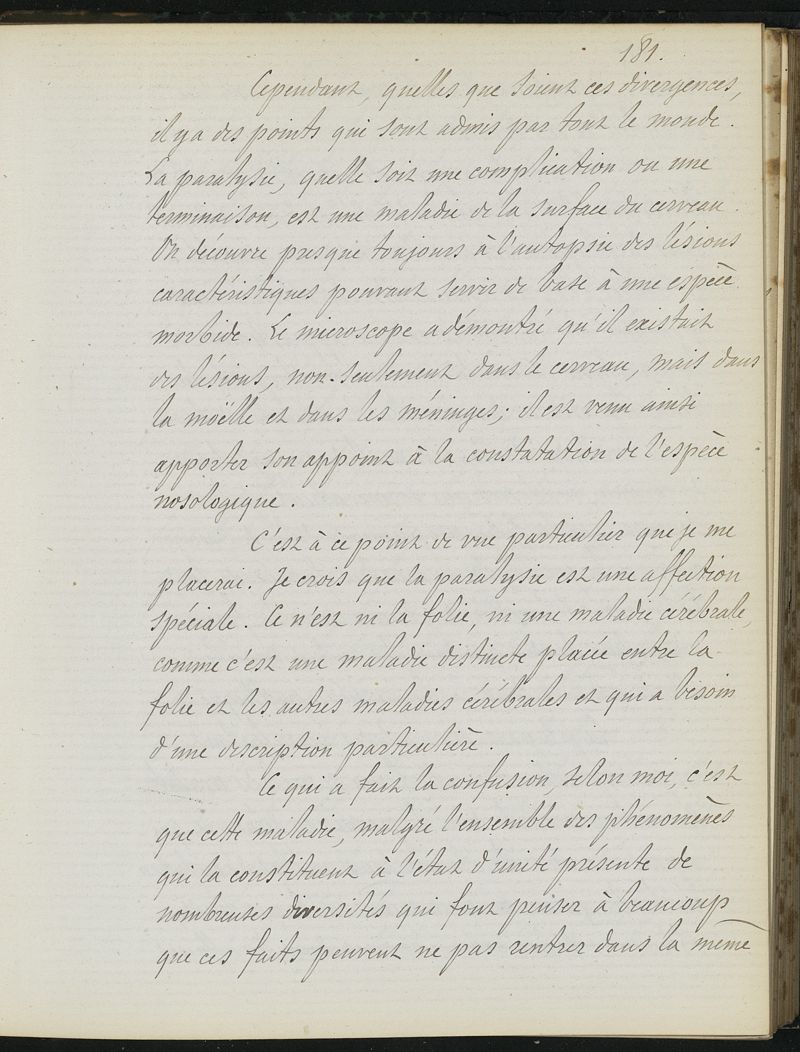 181.
Cependant, quelles que soient ces divergences,
il y a des points qui sont admis par tout le monde.
La paralysie, quelle soit une complication ou une
terminaison, est une maladie de la surface du cerveau.
On découvre presque toujours à l'autopsie des lésions
caractéristiques pouvant servir de base à une espèce
morbide. Le microscope a démontré qu'il existait
des lésions, non-seulement dans le cerveau, mais dans
la moëlle et dans les méninges; il est venu ainsi
apporter son appoint à la constatation de l'espèce
nosologique.
C'est à ce point de vue particulier que je me
placerai. Je crois que la paralysie est une affection
spéciale. Ce n'est ni la folie, ni une maladie cérébrale,
comme c'est une maladie distincte placée entre la
folie et les autres maladies cérébrales et qui a besoin
d'une description particulière.
Ce qui a fait la confusion, selon moi, c'est
que cette maladie, malgré l'ensemble des phénomènes
qui la constituent à l'état d'unité présente de
nombreuses diversités qui font penser à beaucoup
que ces faits peuvent ne pas rentrer dans la même